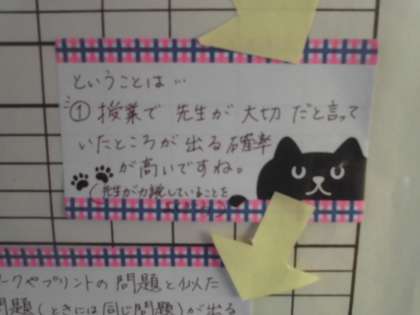 ということは…
① 授業で 先生が 大切 だと言って
いたところが 出る 確率
が高いですね。
(先生が力説していることを
ークやプリントの 問題と似た
問題(ときには同じ問題)が出る